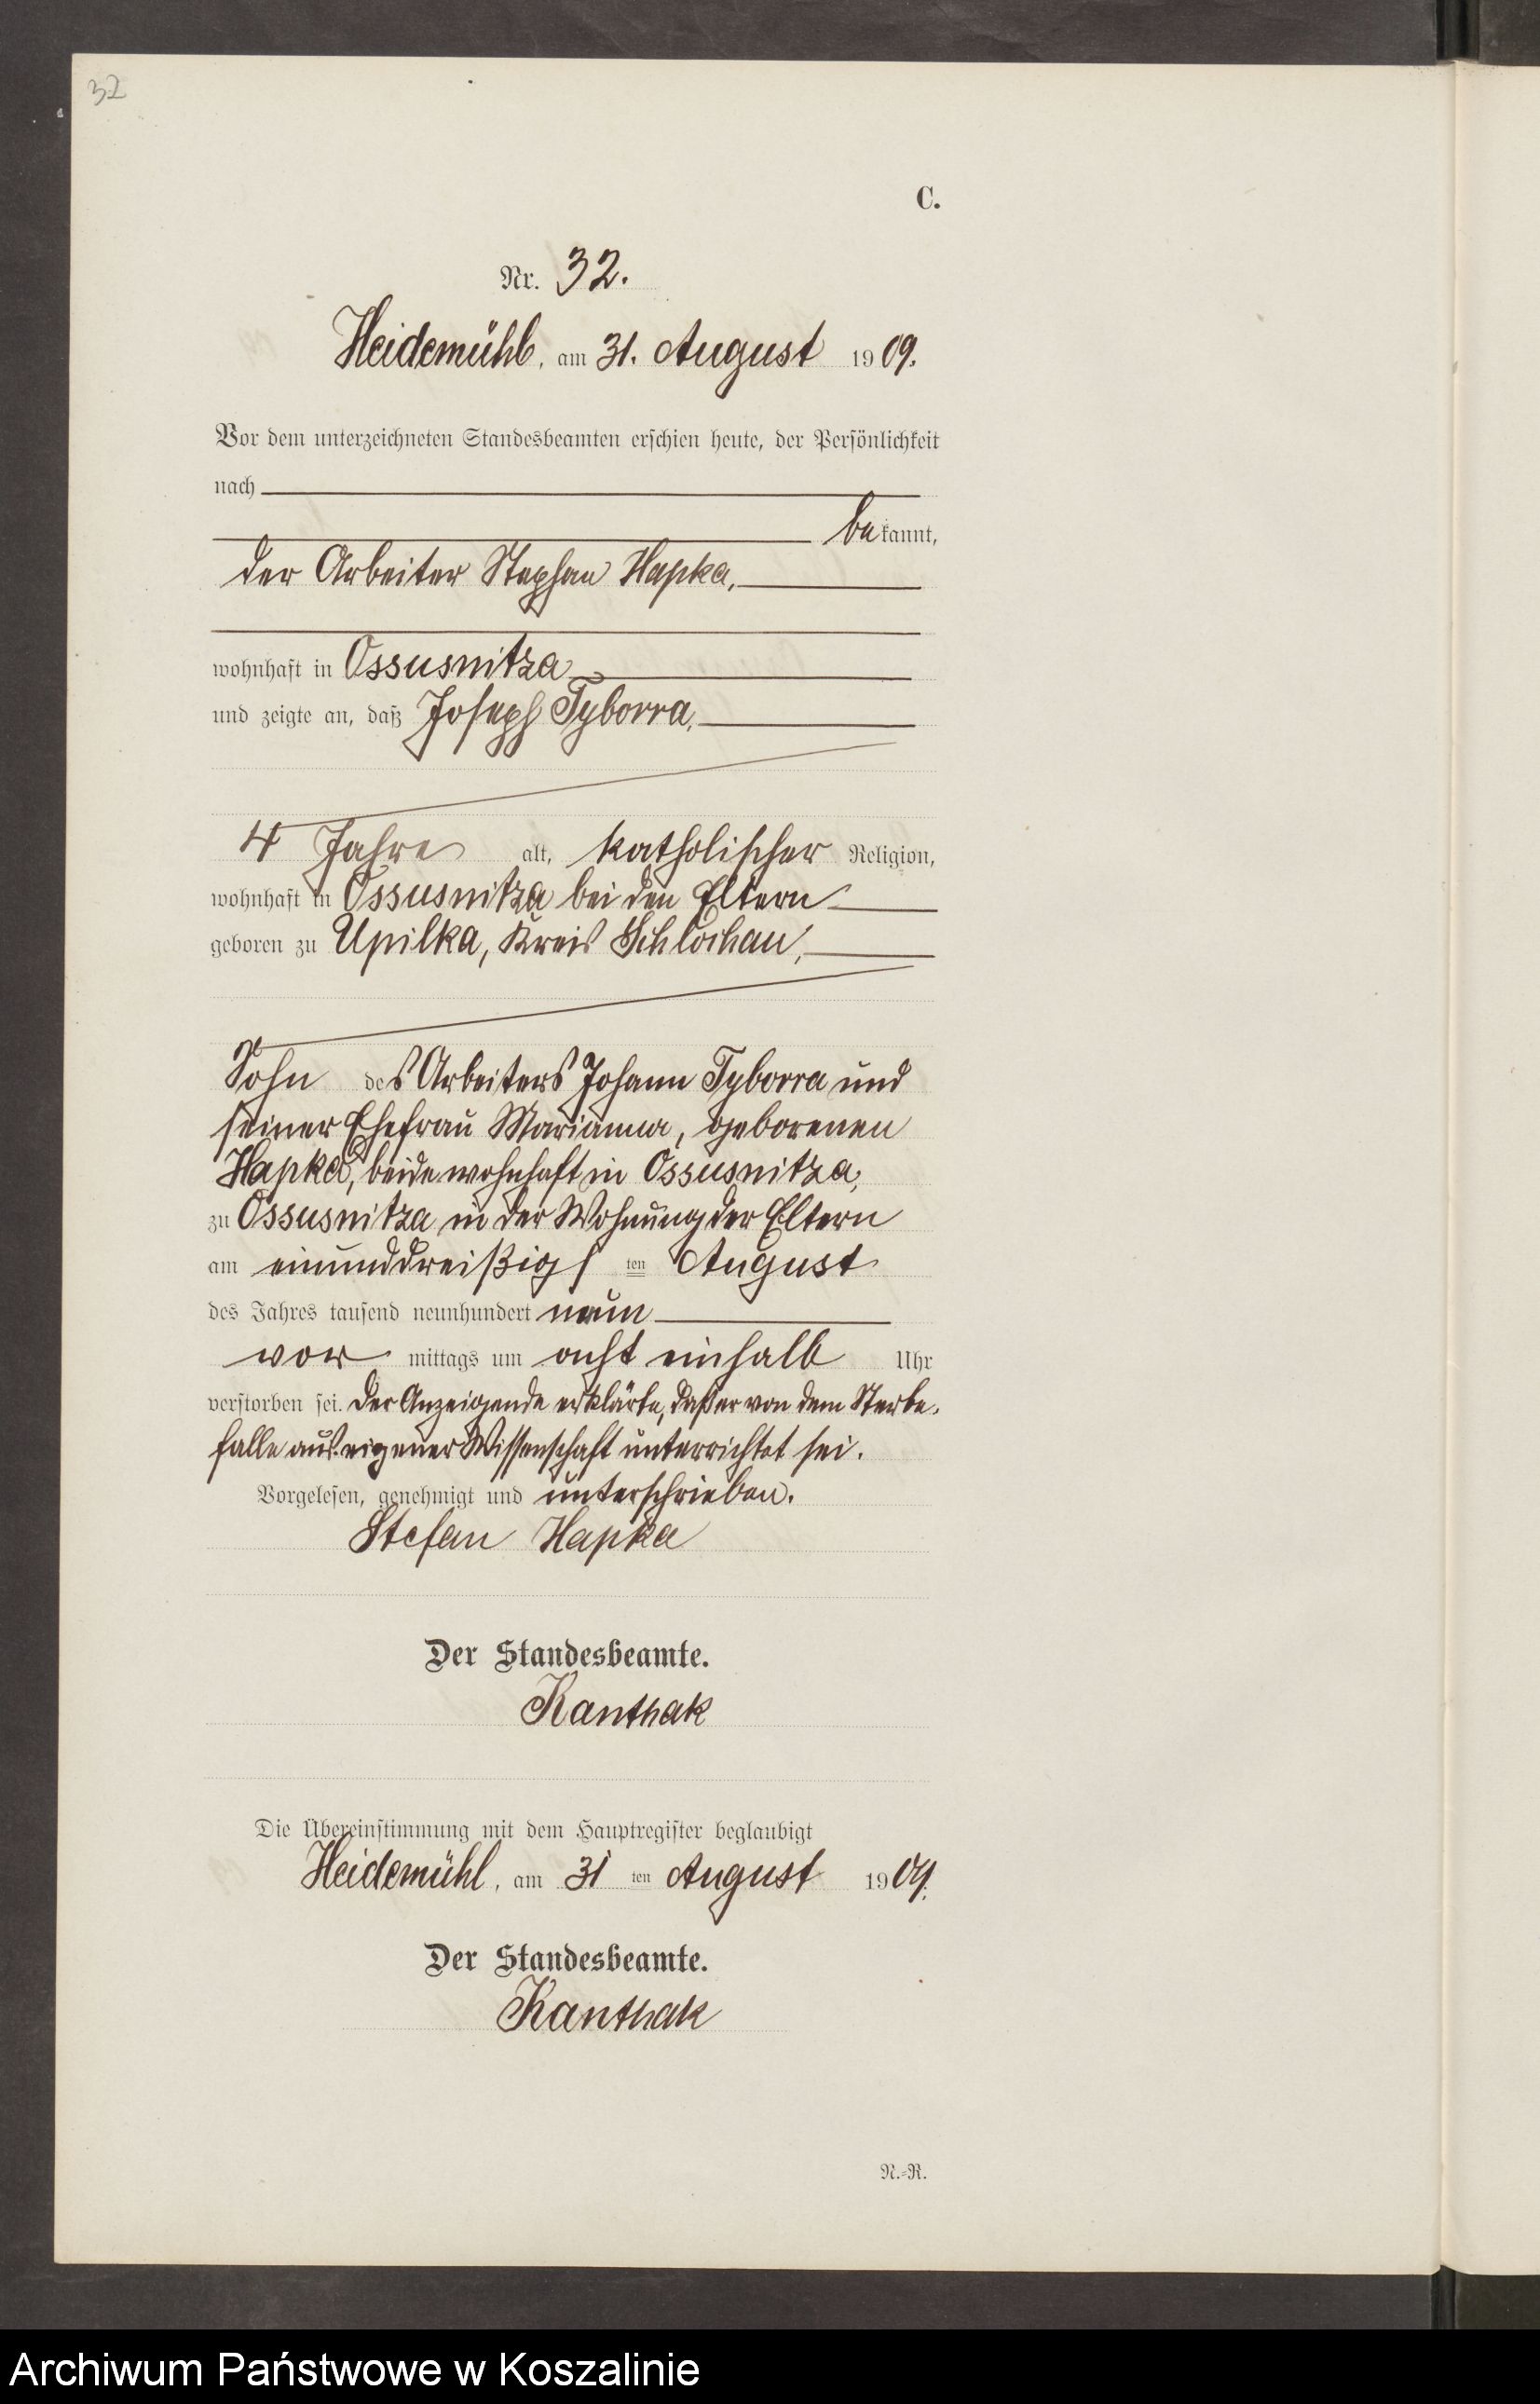 32
C.
Nr. 32.
Heidemühl, am 31. August 1909.
Vor dem unterzeichneten Standesbeamten erschien heute, der Persönlichkeit
nach
bekannt,
der Arbeiter Stephan Hapka,
wohnhaft in Ossusnitza
und zeigte an, daß Joseph Tyborra,
4 Jahre alt, katholischer Religion,
wohnhaft in Ossusnitza bei den Eltern
geboren zu Upilka, Kreis Schlochau,
Sohn des Arbeiters Johann Tyborra und
seiner Ehefrau Marianna, geborenen
Hapka, beide wohnhaft in Ossusnitza,
zu Ossusnitza in der Wohnung der Eltern
am einunddreißigsten August
des Jahres tausend neunhundert neun
vor mittags um acht einhalb Uhr
verstorben sei. Der Anzeigende erklärte, daß er von dem Sterbe-
falle aus eigener Wissenschaft unterrichtet sei.
Vorgelesen, genehmigt und unterschrieben.
Stefan Hapka
Der Standesbeamte.
Kanthak
Die Übereinstimmung mit dem Hauptregister beglaubigt
Heidemühl, am 31 ten August 1909.
Der Standesbeamte.
Kanthak
N.-R.
Archiwum Państwowe w Koszalinie